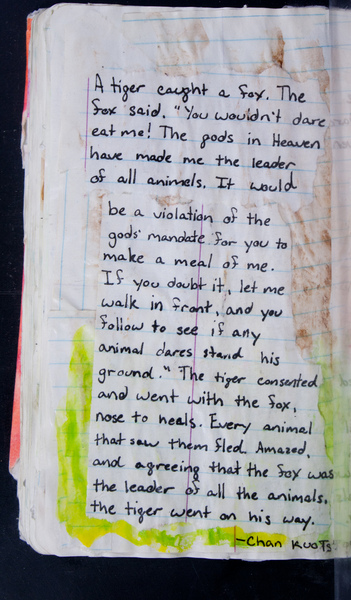 A tiger caught a fox. The
fox said, "You wouldn't dare
eat me! The gods in Heaven
have made me the leader
of all animals. It would
be a violation of the
gods' mandate for you to
make a meal of me.
If you doubt it, let me
walk in front, and you
follow to see if any
animal dares stand his
ground." The tiger consented
and went with the fox,
nose to heals. Every animal
that saw them fled. Amazed,
and agreeing that the fox was
the leader of all the animals,
the tiger went on his way.
-Chan Kuo Ts'